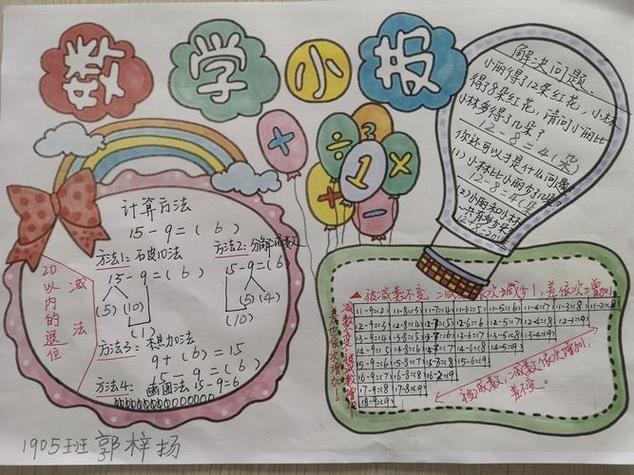 数学小报
解决问题.
小丽得了12朵红花，小林
得了8朵红花，请问小丽比
小林多得了几朵？
12-8=4(朵)
你还可以提什么问题
(1)小林比小丽少
12-8=4(朵)
(2)小丽和小林
÷ 3
+ 1 ×
+ -
计算方法
15-9=(6)
方法1:
方法2:
15-9=(6)
15-9=(6)
(5) (10)
(5)(4)
(1)
(10)
方法3: 想加法
9+(6)=15
15-9=(6)
方法4: 画图法 15-9=6
20以内的退位
减法
▲被减数不变,减数依次减少1,差依次增加1
11-9=(2) 11-8=(3) 11-7=(4) 11-6=(5) 11-5=(6) 11-4=(7) 11-3=(8) 11-2=(9)
12-9=(3) 12-8=(4) 12-7=(5) 12-6=(6) 12-5=(7) 12-4=(8) 12-3=(9)
13-9=(4) 13-8=(5) 13-7=(6) 13-6=(7) 13-5=(8) 13-4=(9)
14-9=(5) 14-8=(6) 14-7=(7) 14-6=(8) 14-5=(9)
15-9=(6) 15-8=(7) 15-7=(8) 15-6=(9)
16-9=(7) 16-8=(8) 16-7=(9)
17-9=(8) 17-8=(9)
18-9=(9)
被减数,减数依次增加,
差不变。
1905班 郭梓扬